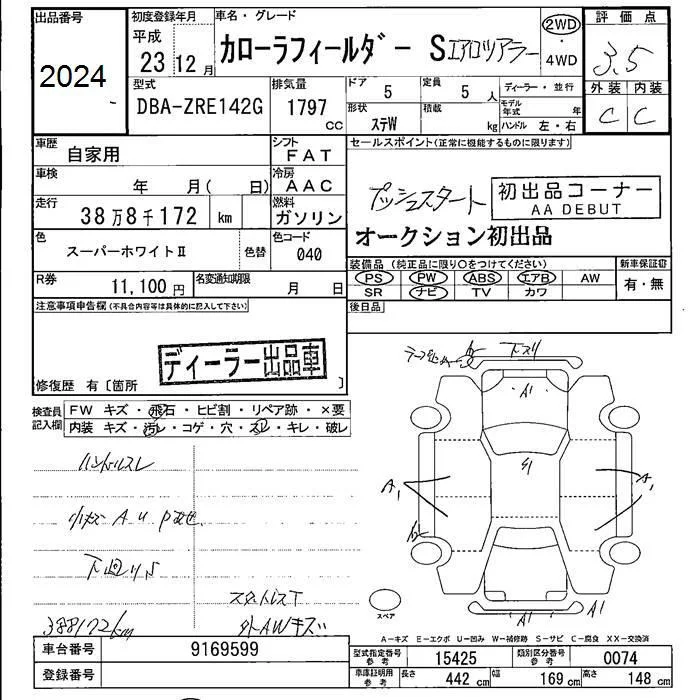 出品番号
2024
初度登録年月
平成
23 12月
車名・グレード
カローラフィールダー Sエアロツアラー
2WD
・
4WD
評価点
3.5
外装 内装
C C
型式
DBA-ZRE142G
排気量
1797 CC
ドア
5
定員
5 人
ディーラー・並行
形状
ステW
積載
kg
モデル年式 年
ハンドル 左・右
車歴
自家用
シフト
FAT
車検
年 月( 日)
冷房
AAC
走行
38万8千172 km
燃料
ガソリン
色
スーパーホワイトⅡ
色替
色コード
040
R券
11,100円
名変通知期限
月 日
セールスポイント(正常に機能するものに限ります)
プッシュスタート
初出品コーナー
AA DEBUT
オークション初出品
装備品(純正品に限り〇をつけてください)
新車保証書
PS PW ABS エアB AW
SR ナビ TV カワ
有・無
後日品
注意事項申告欄(不具合内容等は具体的に記入して下さい)
ディーラー出品車
修復歴 有〔箇所 〕
検査員記入欄
FW キズ・飛石・ヒビ割・リペア跡・×要
内装 キズ・汚レ・コゲ・穴・スレ・キレ・破レ
ハンドルスレ
小キズ A U P
下廻りS
スタッドレスT
388172km
外AWキズ
下スリ
A1
A1
A1
A1
A1
スペア
A-キズ E-エクボ U-凹み W-補修跡 S-サビ C-腐食 XX-交換済
車台番号
9169599
登録番号
型式指定番号
参考
15425
類別区分番号
参考
0074
車庫証明用
参考
長さ
442cm
幅
169cm
高さ
148cm